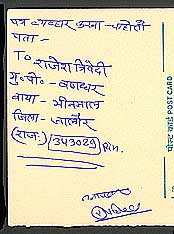 पत्र व्यवहार करना -
पता -
To राजेश त्रिवेदी
मु. पो. -
वाया - भीनमाल
जिला - जालौर
(राज.) 343029 Pin.
पोस्ट कार्ड POST CARD